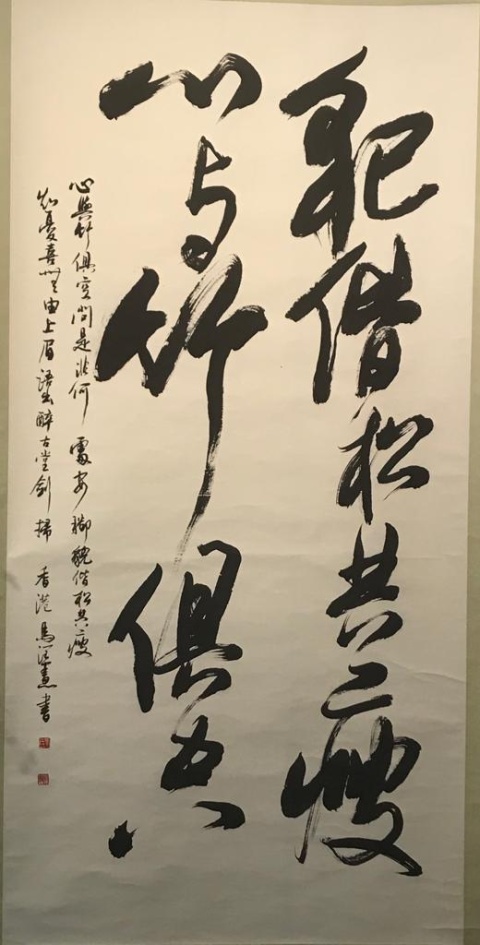 貌偕松共瘦
心与竹俱空
心與竹俱空問是非何處安腳貌偕松共瘦
知憂喜無由上眉語出醉古堂劍掃 香港馬書